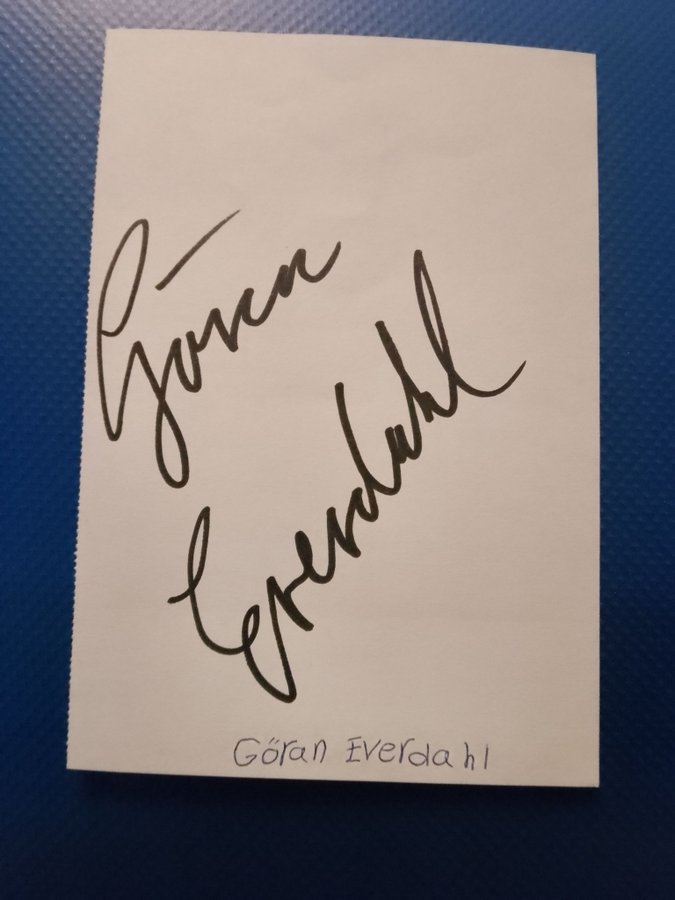 Göran
Everdahl
Göran Everdahl